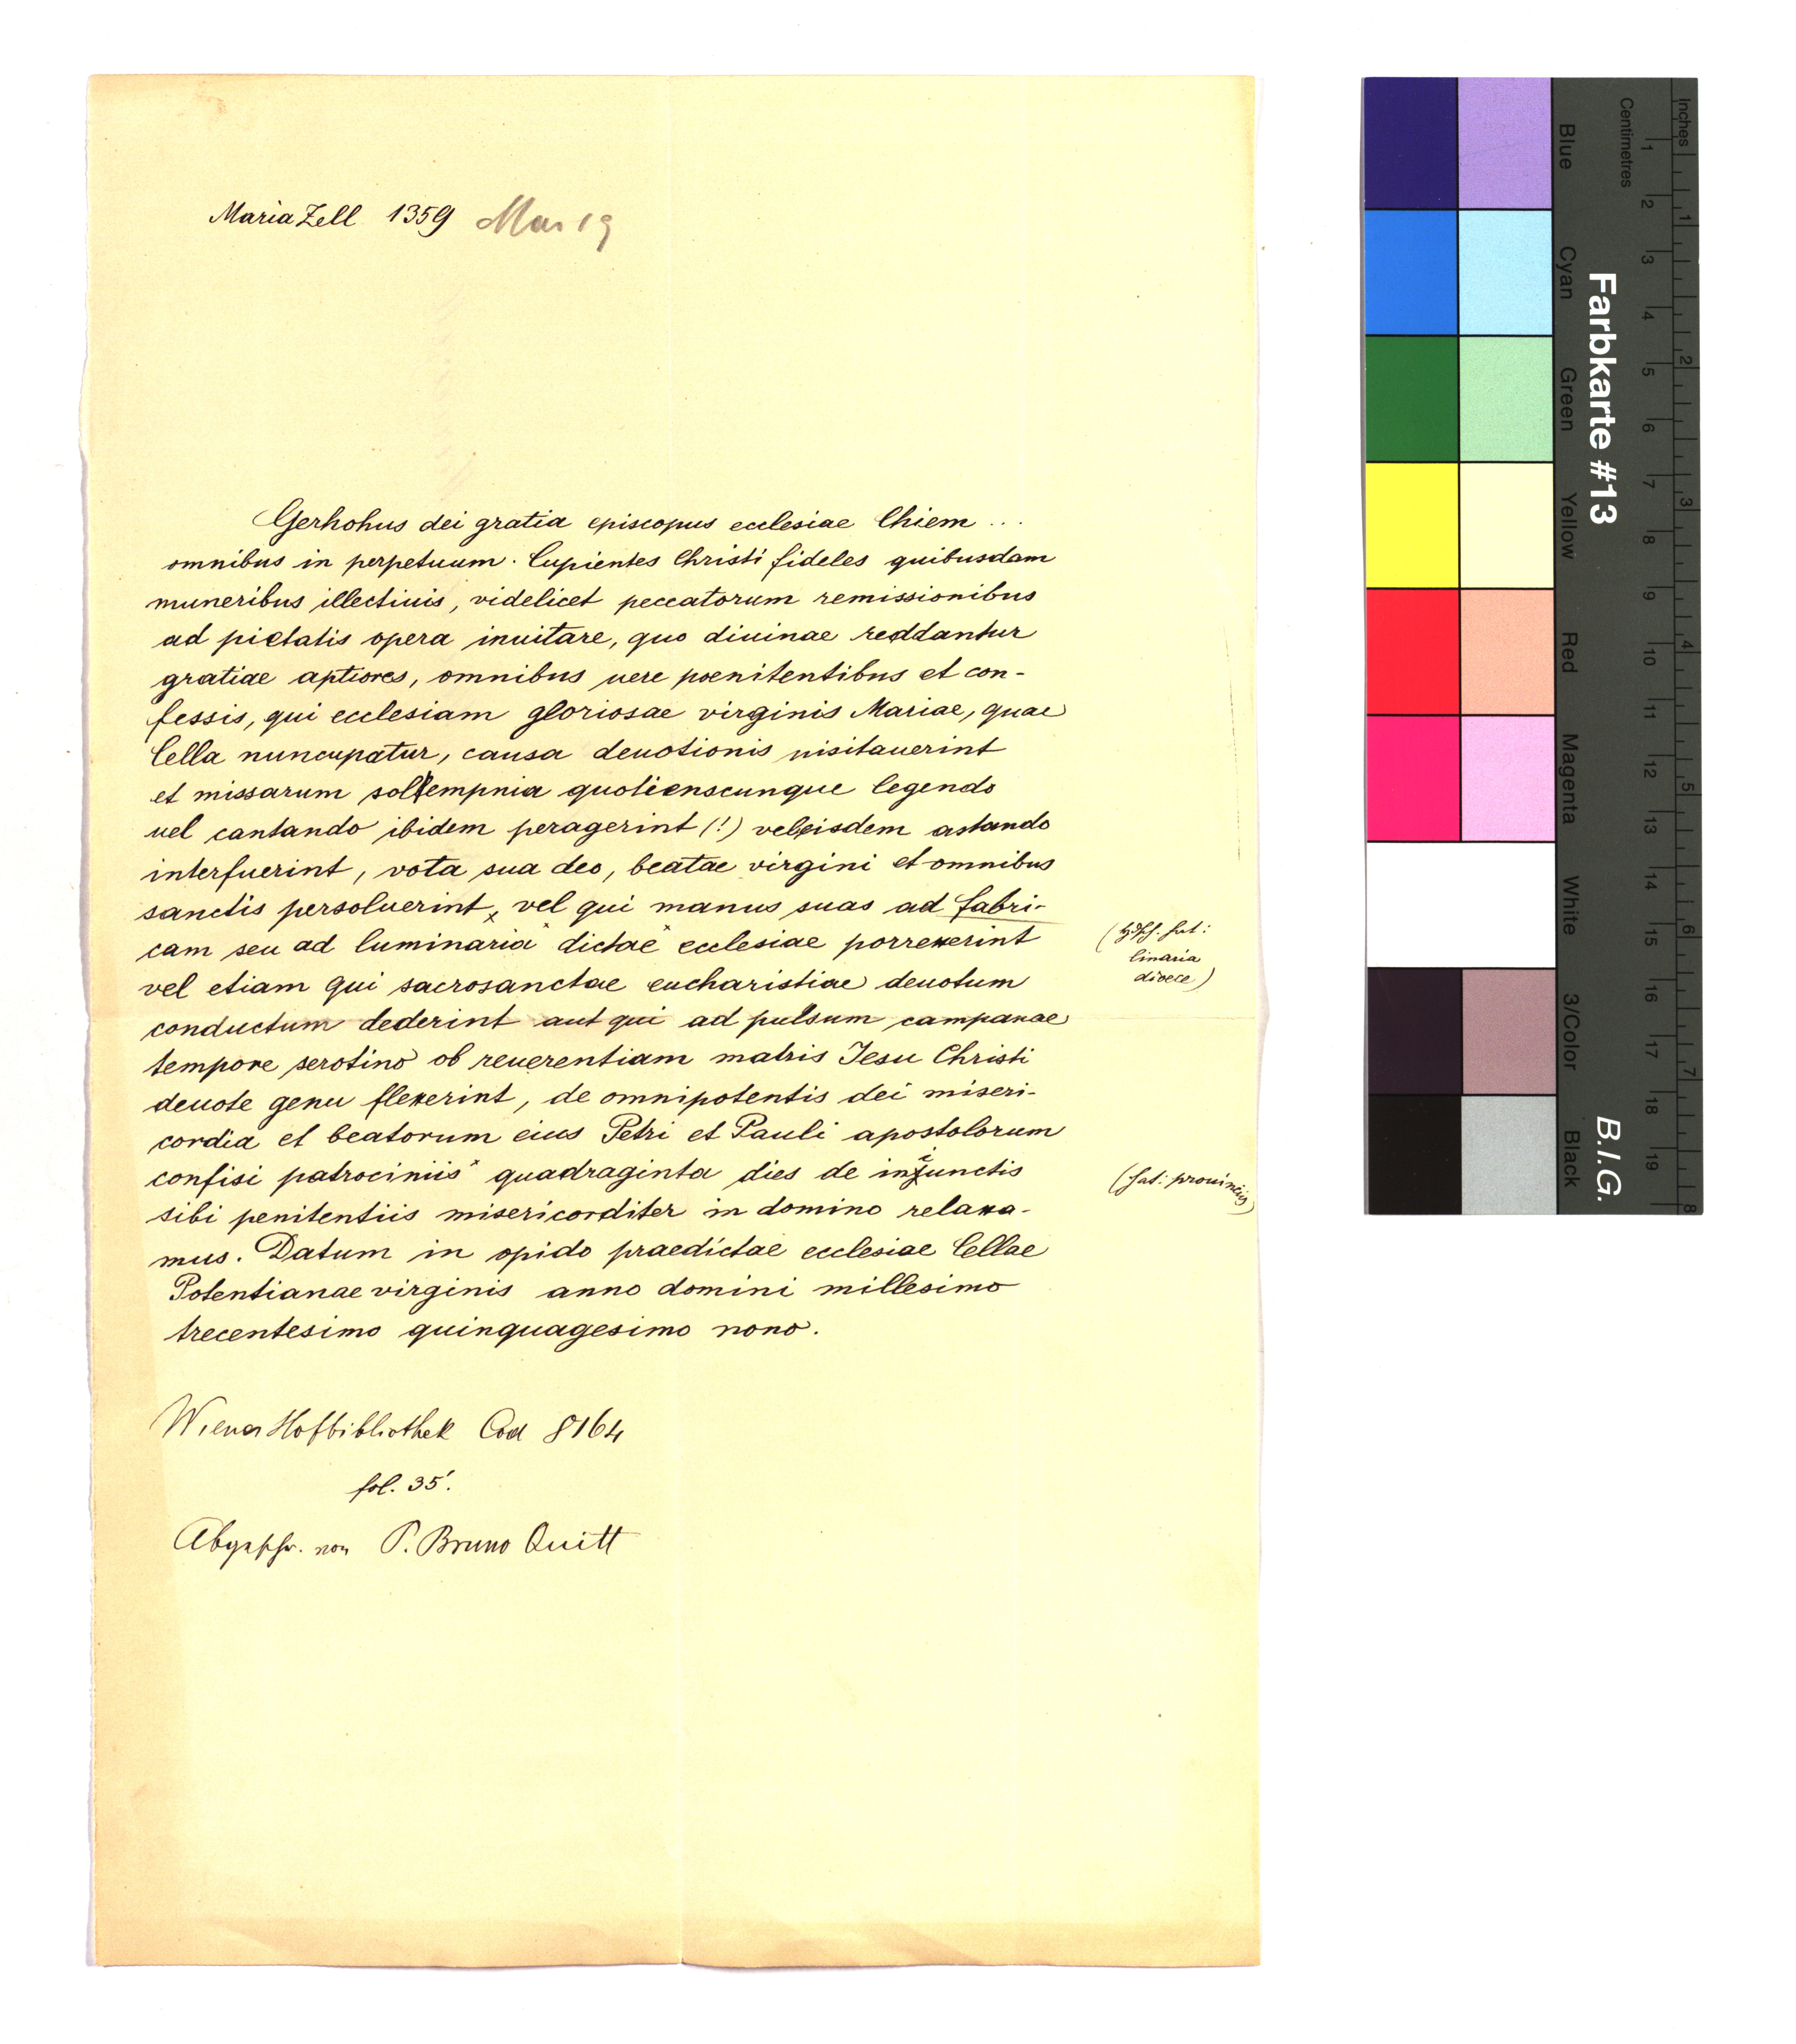 Maria Zell 1359 Mai 19
Gerhohus dei gratia episcopus ecclesiae Chiem ...
omnibus in perpetuum. Cupientes Christi fideles quibusdam
muneribus illectiuis, videlicet peccatorum remissionibus
ad pietatis opera inuitare, quo diuinae reddantur
gratiae aptiores, omnibus uere poenitentibus et con-
fessis, qui ecclesiam gloriosae virginis Mariae, quae
Cella nuncupatur, causa deuotionis uisitauerint
et missarum sollempnia quotienscunque legendo
uel cantando ibidem peragerint (!) vel eisdem astando
interfuerint, vota sua deo, beatae virgini et omnibus
sanctis persoluerint, vel qui manus suas ad fabri-
cam seu ad luminaria dictae ecclesiae porrexerint
(Hdsch. hat:
linaria
dioece)
vel etiam qui sacrosanctae eucharistiae deuotum
conductum dederint aut qui ad pulsum campanae
tempore serotino ob reuerentiam matris Jesu Christi
deuote genu flexerint, de omnipotentis dei miseri-
cordia et beatorum eius Petri et Pauli apostolorum
confisi patrociniis quadraginta dies de iniunctis
(hat: prouinciis)
sibi penitentiis misericorditer in domino relaxa-
mus. Datum in opido praedictae ecclesiae Cellae
Potentianae virginis anno domini millesimo
trecentesimo quinquagesimo nono.
Wiener Hofbibliothek Cod 8164
fol. 35'.
Abgeschr. von P. Bruno Quitt
Inches
Centimetres
1 2 3 4 5 6 7 8 9 10 11 12 13 14 15 16 17 18 19
1 2 3 4 5 6 7 8
Farbkarte #13
B.I.G.
Blue
Cyan
Green
Yellow
Red
Magenta
White
3/Color
Black